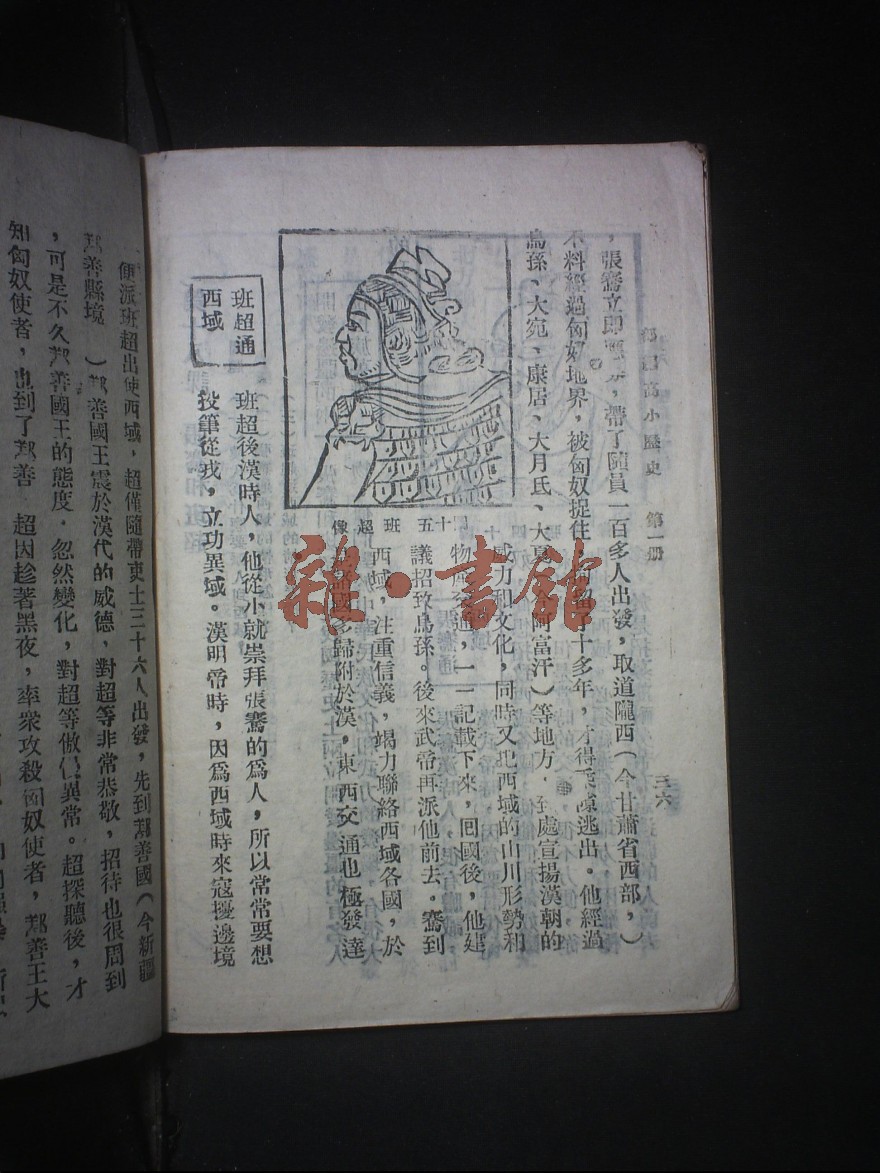 高小歷史 第一册
三六
，張騫立即應募，帶了隨員一百多人出發，取道隴西（今甘肅省西部，）
不料經過匈奴地界，被匈奴捉住，拘留了十多年，才得乘隙逃出。他經過
烏孫、大宛、康居、大月氏、大夏（今阿富汗）等地方，到處宣揚漢朝的
威力和文化，同時又把西域的山川形勢和
物產交通，一一記載下來，回國後，他建
議招致烏孫。後來武帝再派他前去。騫到
西域，注重信義，竭力聯絡西域各國，於
是諸國多歸附於漢，東西交通也極發達
十五 班超像
班超通
西域
班超後漢時人，他從小就崇拜張騫的爲人，所以常常要想
投筆從戎，立功異域。漢明帝時，因爲西域時來寇擾邊境
便派班超出使西域，超僅隨帶吏士三十六人出發，先到鄯善國（今新疆
鄯善縣境 ）鄯善國王震於漢代的威德，對超等非常恭敬，招待也很周到
，可是不久鄯善國王的態度，忽然變化，對超等傲慢異常。超探聽後，才
知匈奴使者，也到了鄯善 超因趁著黑夜，率衆攻殺匈奴使者，鄯善王大
雜·書館